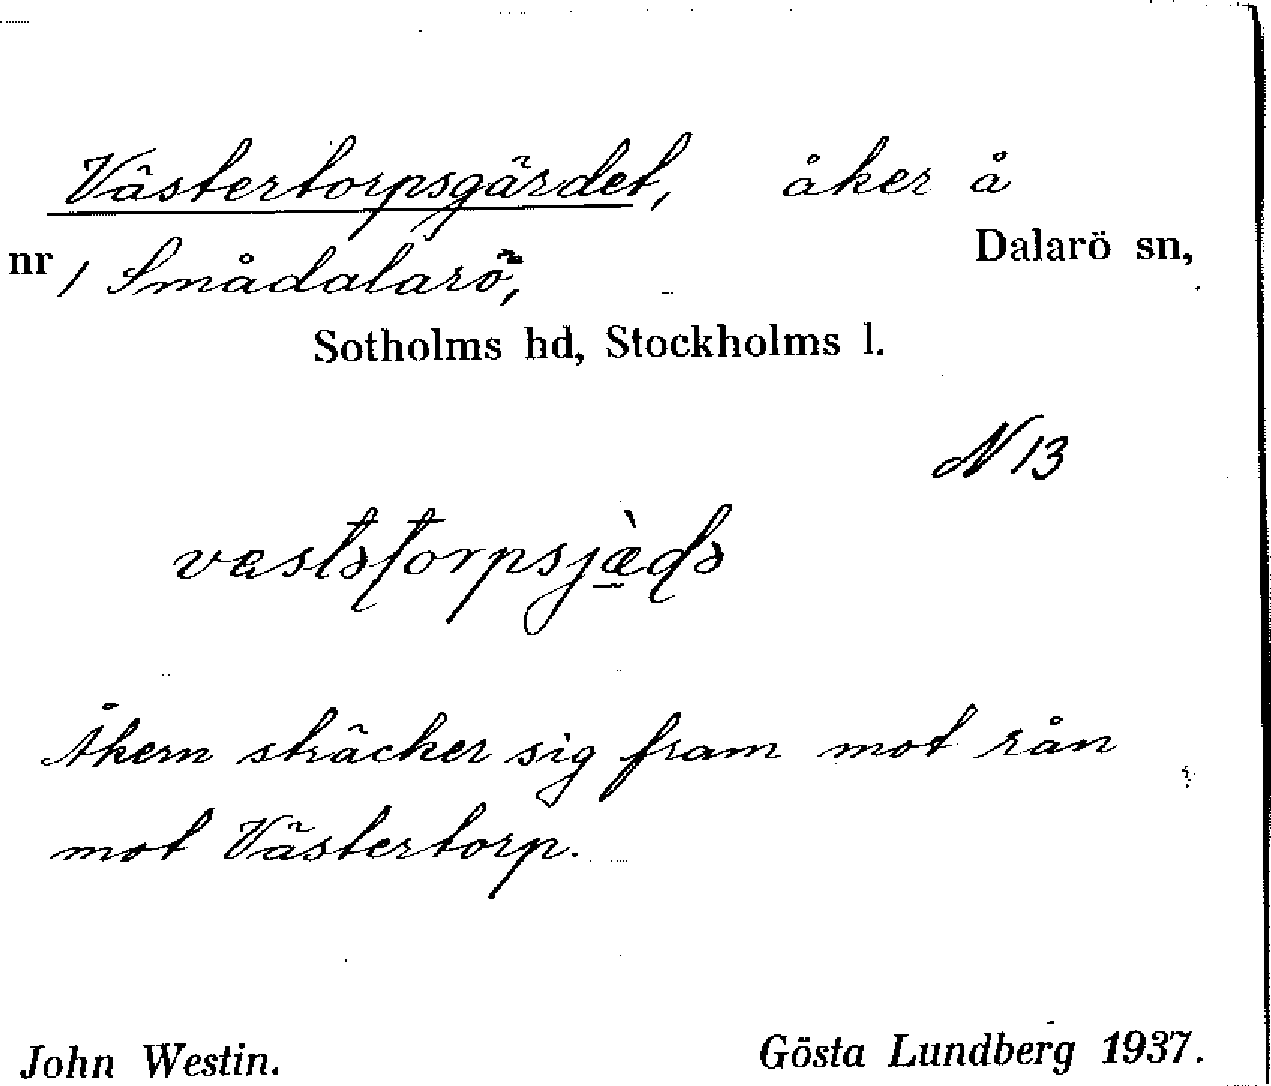 Västertorpsgärdet, åker å
Dalarö sn,
nr 1 Smådalarö,
Sotholms hd, Stockholms l.
N 13
væstətorpsjæ̀də
Åkern sträcker sig fram mot rån
mot Västertorp.
John Westin. Gösta Lundberg 1937.